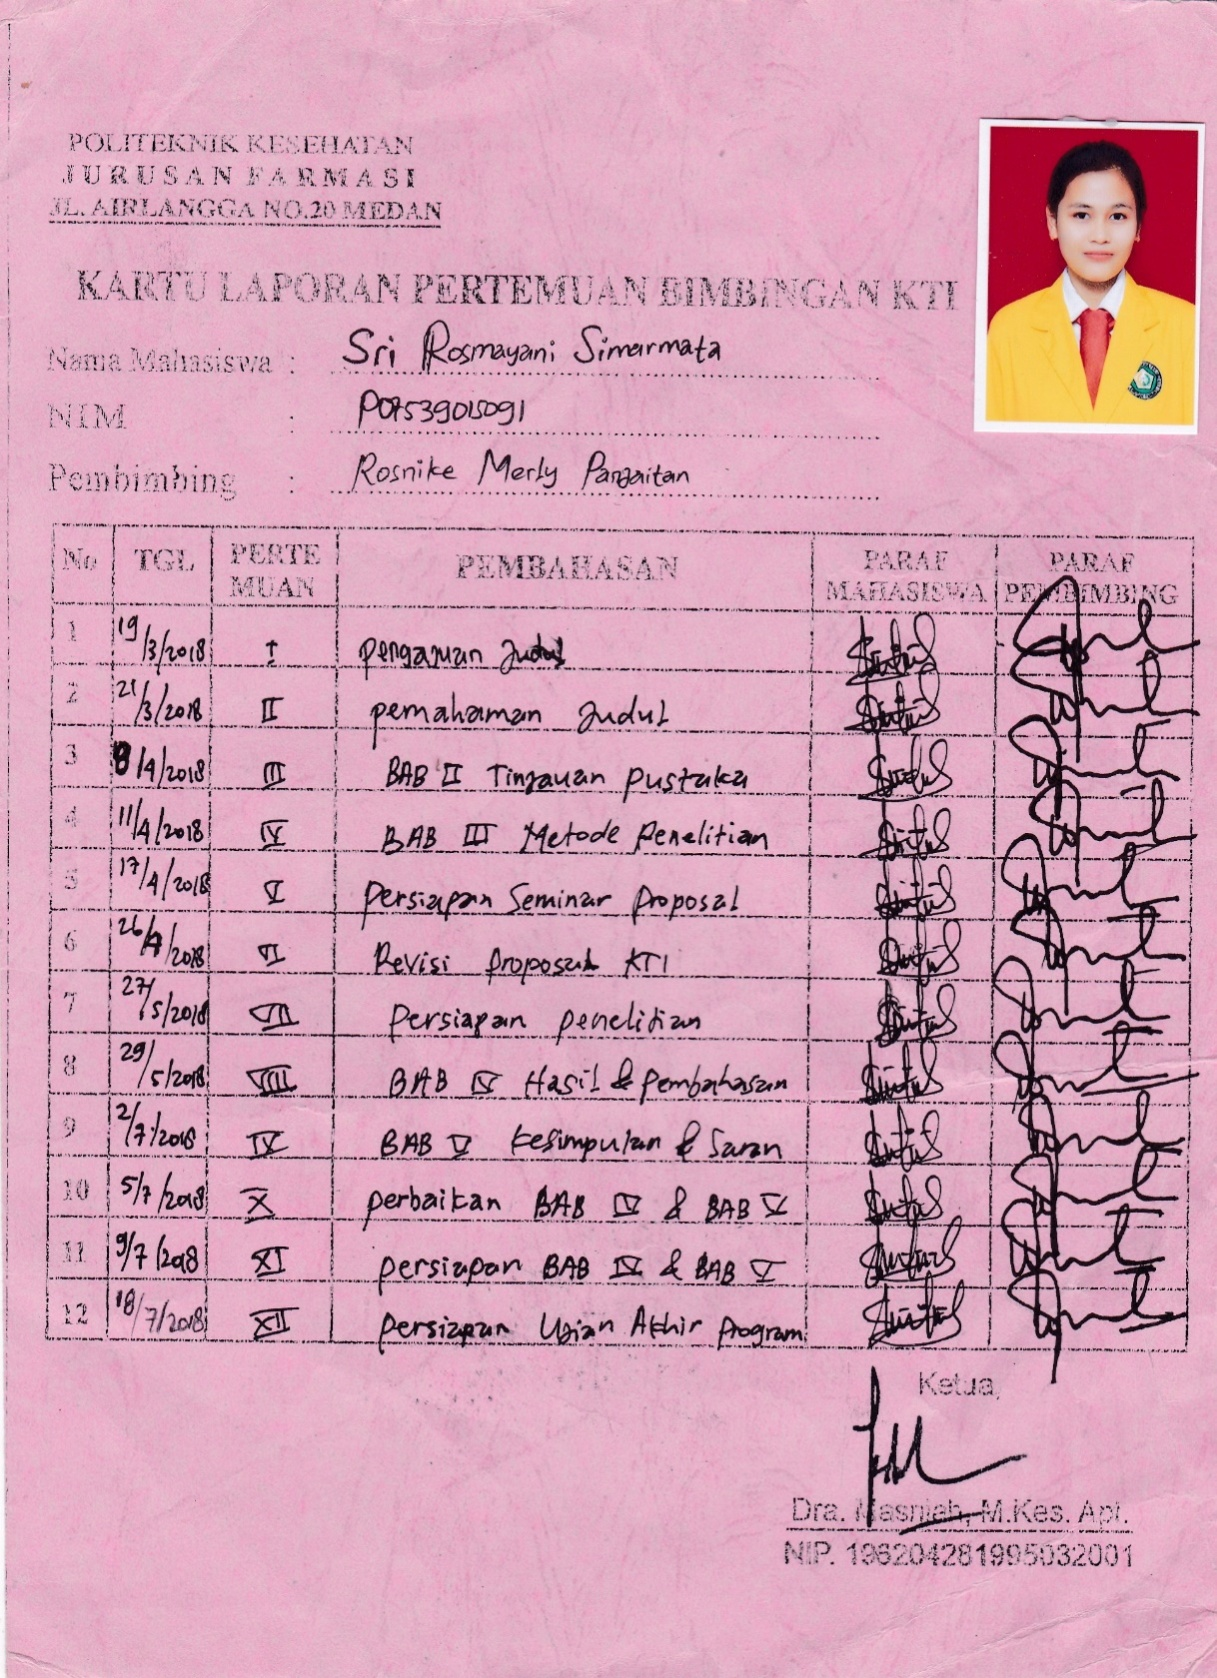 POLITEKNIK KESEHATAN
JURUSAN FARMASI
JL. AIRLANGGA NO.20 MEDAN
KARTU LAPORAN PERTEMUAN BIMBINGAN KTI
Nama Mahasiswa : Sri Rosmayani Simarmata
NIM : P07539015091
Pembimbing : Rosnike Merly Panjaitan
No TGL PERTE MUAN PEMBAHASAN PARAF MAHASISWA PARAF PEMBIMBING
1 19/3/2018 I pengajuan Judul
2 21/3/2018 II pemahaman Judul
3 8/4/2018 III BAB II Tinjauan pustaka
4 11/4/2018 IV BAB III Metode Penelitian
5 17/4/2018 V Persiapan Seminar proposal
6 26/4/2018 VI Revisi proposal KTI
7 27/5/2018 VII Persiapan penelitian
8 29/5/2018 VIII BAB IV Hasil & pembahasan
9 2/7/2018 IX BAB V Kesimpulan & Saran
10 5/7/2018 X perbaikan BAB IV & BAB V
11 9/7/2018 XI persiapan BAB IV & BAB V
12 18/7/2018 XII persiapan Ujian Akhir Program
Ketua,
Dra. Masniah, M.Kes. Apt.
NIP. 196204281995032001